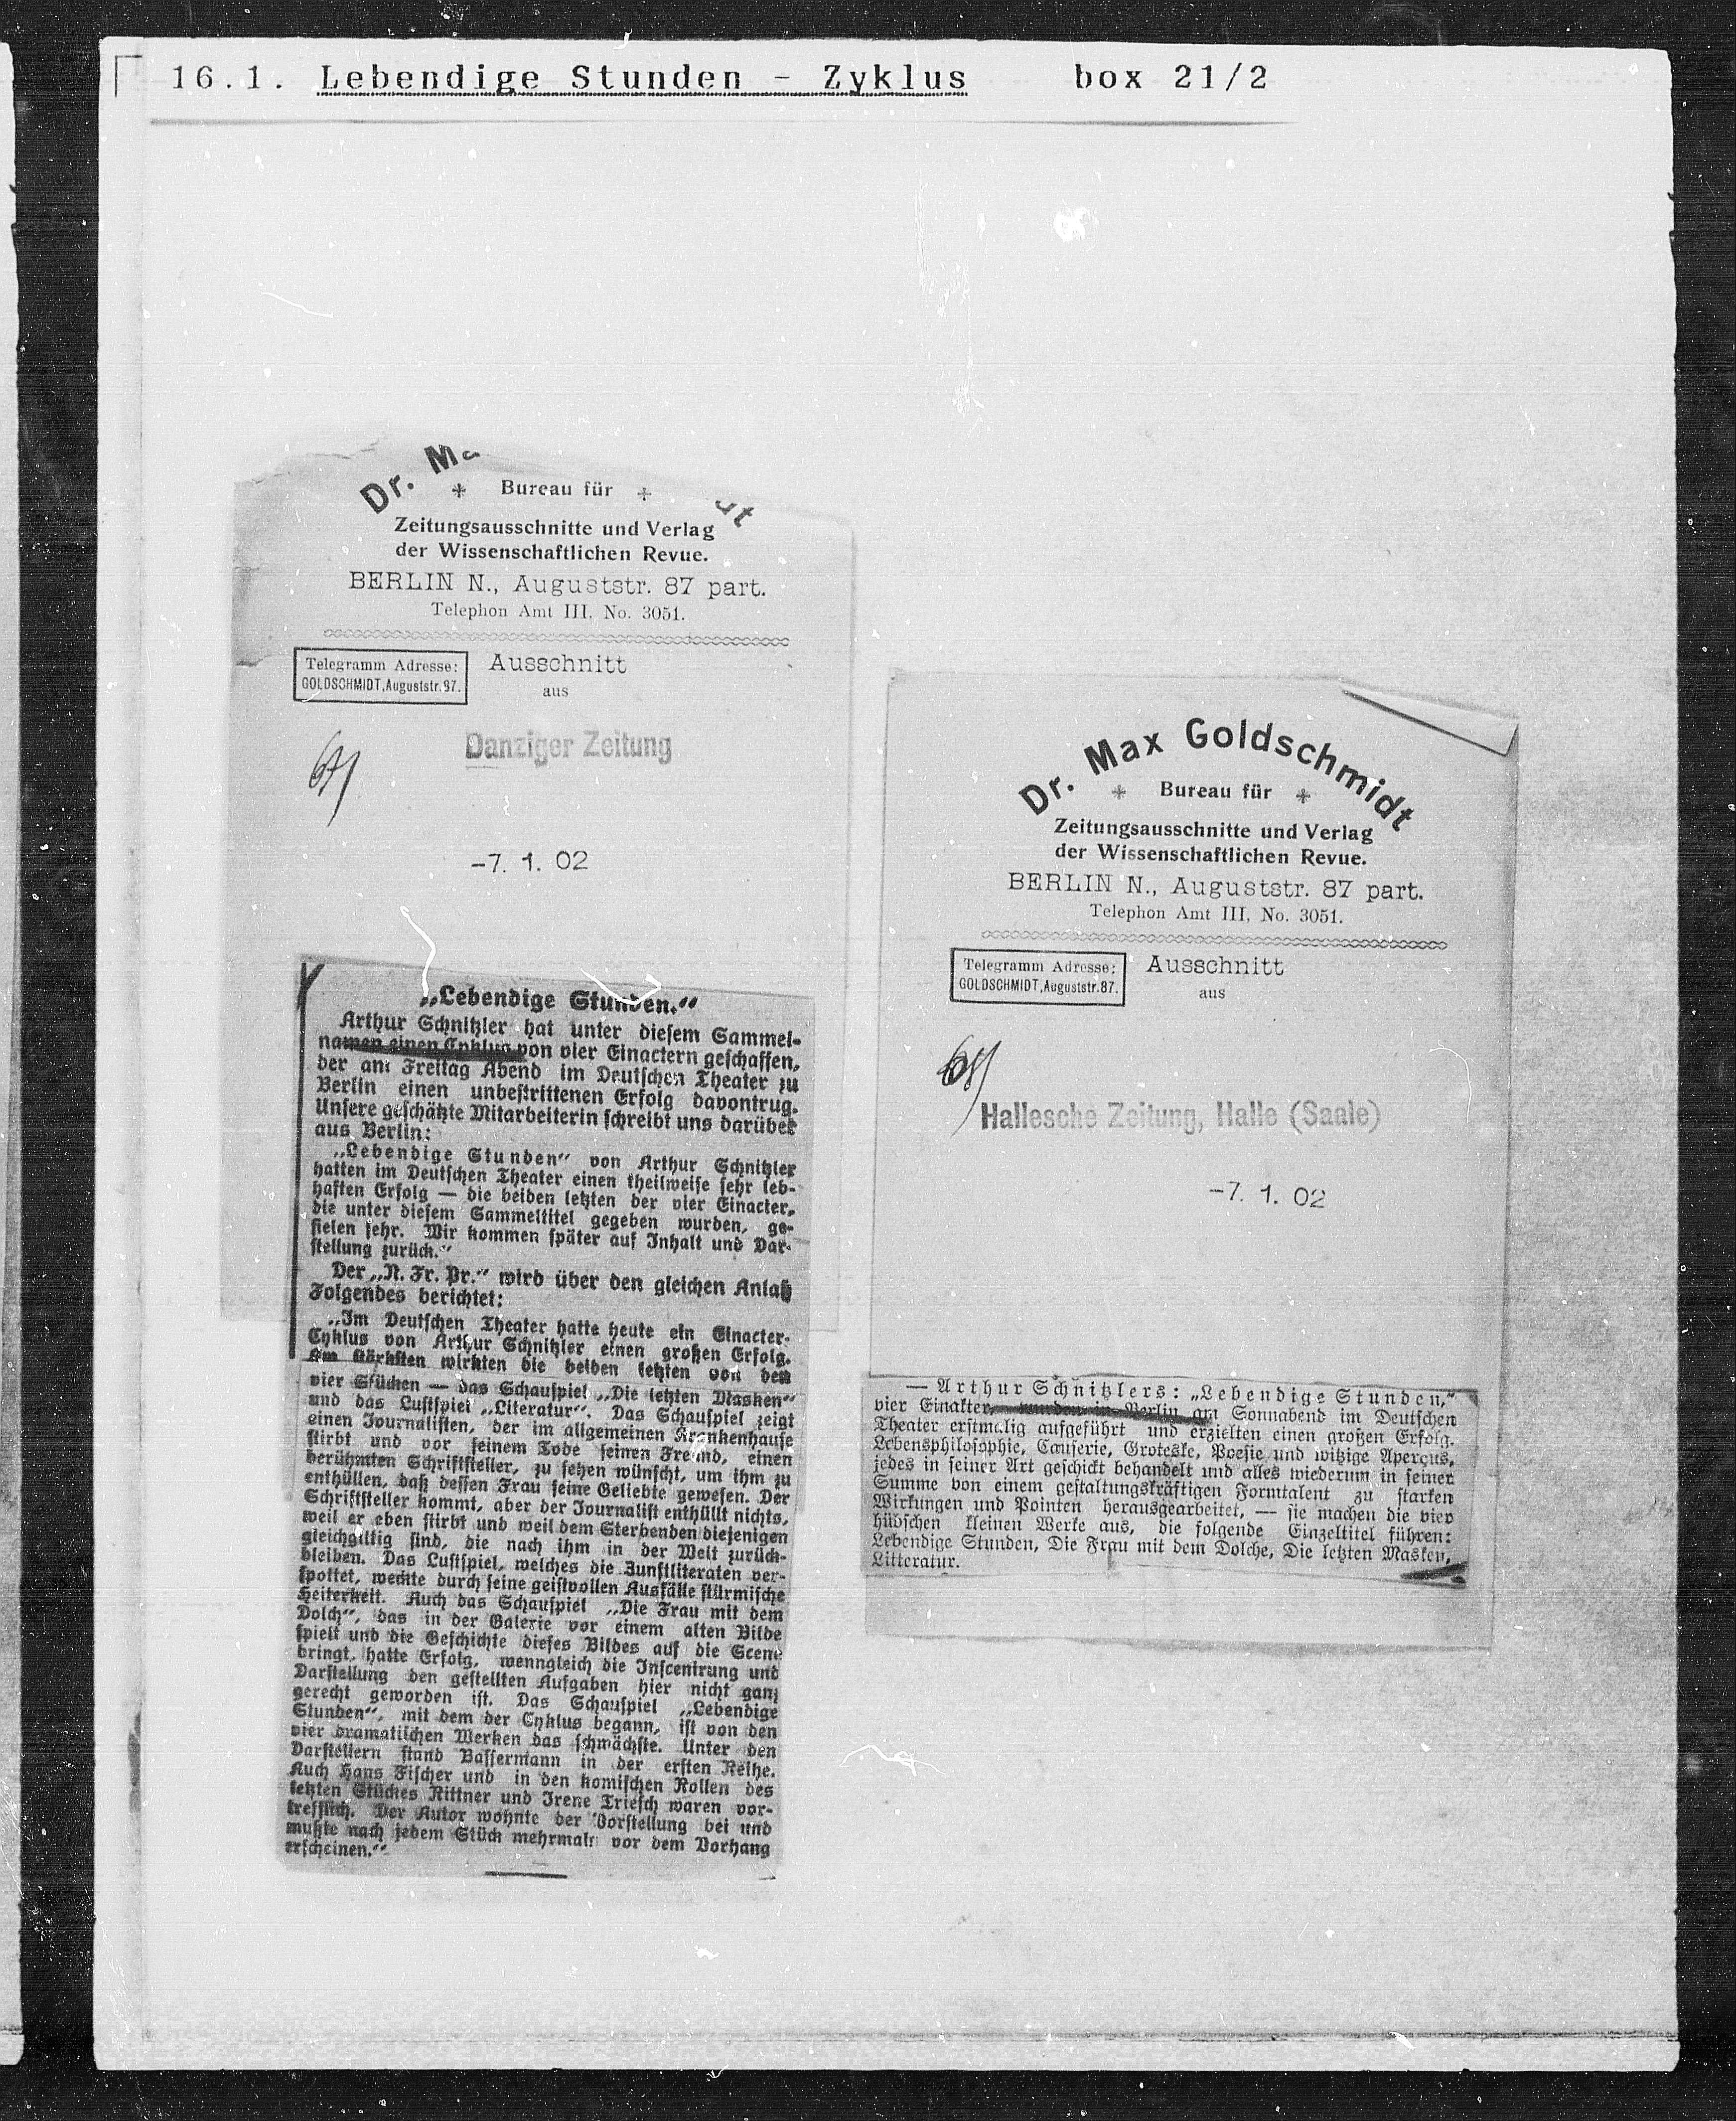 16.1. Lebendige Stunden - Zyklus box 21/2
Dr. Ma
Bureau für
Zeitungsausschnitte und Verlag
der Wissenschaftlichen Revue.
BERLIN N., Auguststr. 87 part.
Telephon Amt III, No. 3051.
Telegramm Adresse:
GOLDSCHMIDT, Auguststr. 87.
Ausschnitt
aus
Danziger Zeitung
-7. 1. 02
„Lebendige Stunden.“
Arthur Schnitzler hat unter diesem Sammel-
namen einen Cyklus von vier Einactern geschaffen,
der am Freitag Abend im Deutschen Theater zu
Berlin einen unbestrittenen Erfolg davontrug.
Unsere geschätzte Mitarbeiterin schreibt uns darüber
aus Berlin:
„Lebendige Stunden“ von Arthur Schnitzler
hatten im Deutschen Theater einen theilweise sehr leb-
haften Erfolg — die beiden letzten der vier Einacter,
die unter diesem Sammeltitel gegeben wurden, ge-
fielen sehr. Wir kommen später auf Inhalt und Dar-
stellung zurück.“
Der „N. Fr. Pr.“ wird über den gleichen Anlaß
Folgendes berichtet:
„Im Deutschen Theater hatte heute ein Einacter-
Cyklus von Arthur Schnitzler einen großen Erfolg.
Am stärksten wirkten die beiden letzten von den
vier Stücken — das Schauspiel „Die letzten Masken“
und das Lustspiel „Literatur“. Das Schauspiel zeigt
einen Journalisten, der im allgemeinen Krankenhause
stirbt und vor seinem Tode seinen Freund, einen
berühmten Schriftsteller, zu sehen wünscht, um ihm zu
enthüllen, daß dessen Frau seine Geliebte gewesen. Der
Schriftsteller kommt, aber der Journalist enthüllt nichts,
weil er eben stirbt und weil dem Sterbenden diejenigen
gleichgiltig sind, die nach ihm in der Welt zurück-
bleiben. Das Lustspiel, welches die Zunftliteraten ver-
spottet, weckte durch seine geistvollen Ausfälle stürmische
Heiterkeit. Auch das Schauspiel „Die Frau mit dem
Dolch“, das in der Galerie vor einem alten Bilde
spielt und die Geschichte dieses Bildes auf die Scene
bringt, hatte Erfolg, wenngleich die Inscenirung und
Darstellung den gestellten Aufgaben hier nicht ganz
gerecht geworden ist. Das Schauspiel „Lebendige
Stunden“, mit dem der Cyklus begann, ist von den
vier dramatischen Werken das schwächste. Unter den
Darstellern stand Bassermann in der ersten Reihe.
Auch Hans Fischer und in den komischen Rollen des
letzten Stückes Rittner und Irene Triesch waren vor-
trefflich. Der Autor wohnte der Vorstellung bei und
mußte nach jedem Stück mehrmals vor dem Vorhang
erscheinen.“
Dr. Max Goldschmidt
Bureau für
Zeitungsausschnitte und Verlag
der Wissenschaftlichen Revue.
BERLIN N., Auguststr. 87 part.
Telephon Amt III, No. 3051.
Telegramm Adresse:
GOLDSCHMIDT, Auguststr. 87.
Ausschnitt
aus
Hallesche Zeitung, Halle (Saale)
-7. 1. 02
— Arthur Schnitzlers: „Lebendige Stunden,“
vier Einakter, wurden in Berlin am Sonnabend im Deutschen
Theater erstmalig aufgeführt und erzielten einen großen Erfolg.
Lebensphilosophie, Causerie, Groteske, Poesie und witzige Aperçus,
jedes in seiner Art geschickt behandelt und alles wiederum in seiner
Summe von einem gestaltungskräftigen Formtalent zu starken
Wirkungen und Pointen herausgearbeitet, — sie machen die vier
hübschen kleinen Werke aus, die folgende Einzeltitel führen:
Lebendige Stunden, Die Frau mit dem Dolche, Die letzten Masken,
Litteratur.